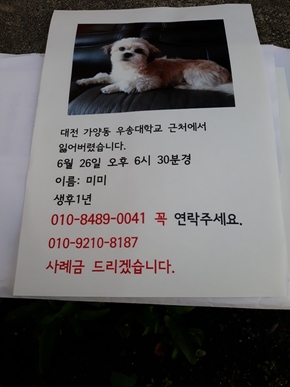 대전 가양동 우송대학교 근처에서
잃어버렸습니다.
6월 26일 오후 6시 30분경
이름: 미미
생후1년
010-8489-0041 꼭 연락주세요.
010-9210-8187
사례금 드리겠습니다.